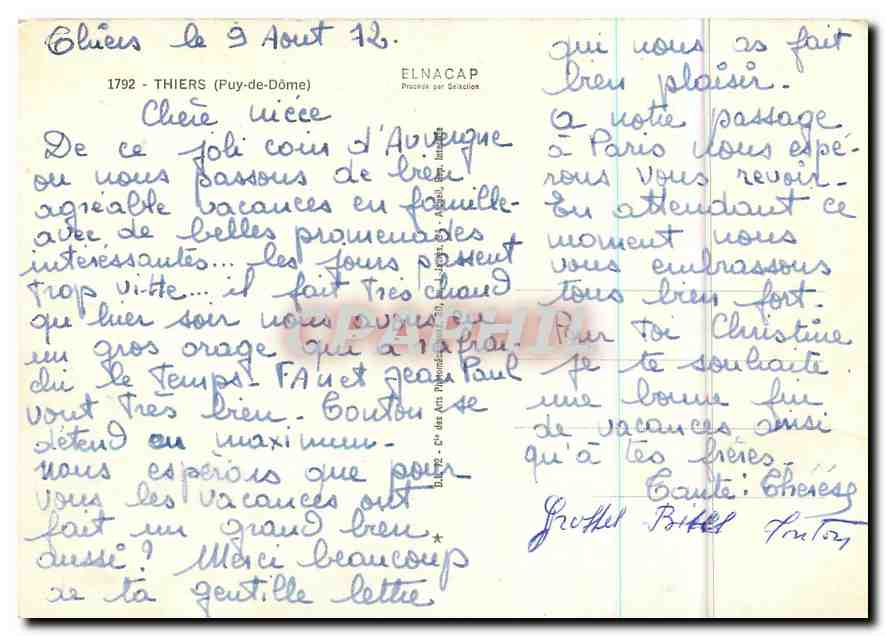 Thiers le 9 Aout 72.
1792 - THIERS (Puy-de-Dôme)
ELNACAP
Procédé par Sélection
Chère nièce
De ce joli coin d'Auvergne
ou nous passons de bien
agréable vacances en famille-
avec de belles promenades
intéréssantes... les jours passent
trop vitte... il fait très chaud
qu'hier soir nous avons eu
un gros orage qui à rafrai-
chi le temps- et Jean Paul
vont très bien- Tonton se
détend au maximum-
nous espérons que pour
vous les vacances ont
fait un grand bien
aussi? Merci beaucoup
de ta gentille lettre
qui nous as fait
bien plaisir-
a notre passage
à Paris nous espé-
rons vous revoir-
En attendant ce
moment nous
vous embrassons
tous bien fort-
Pour toi Christine
je te souhaite
une bonne fin
de vacances ainsi
qu'à tes frères-
Tante: Thérèse
Grosses Bises Tonton
CPAPHIL